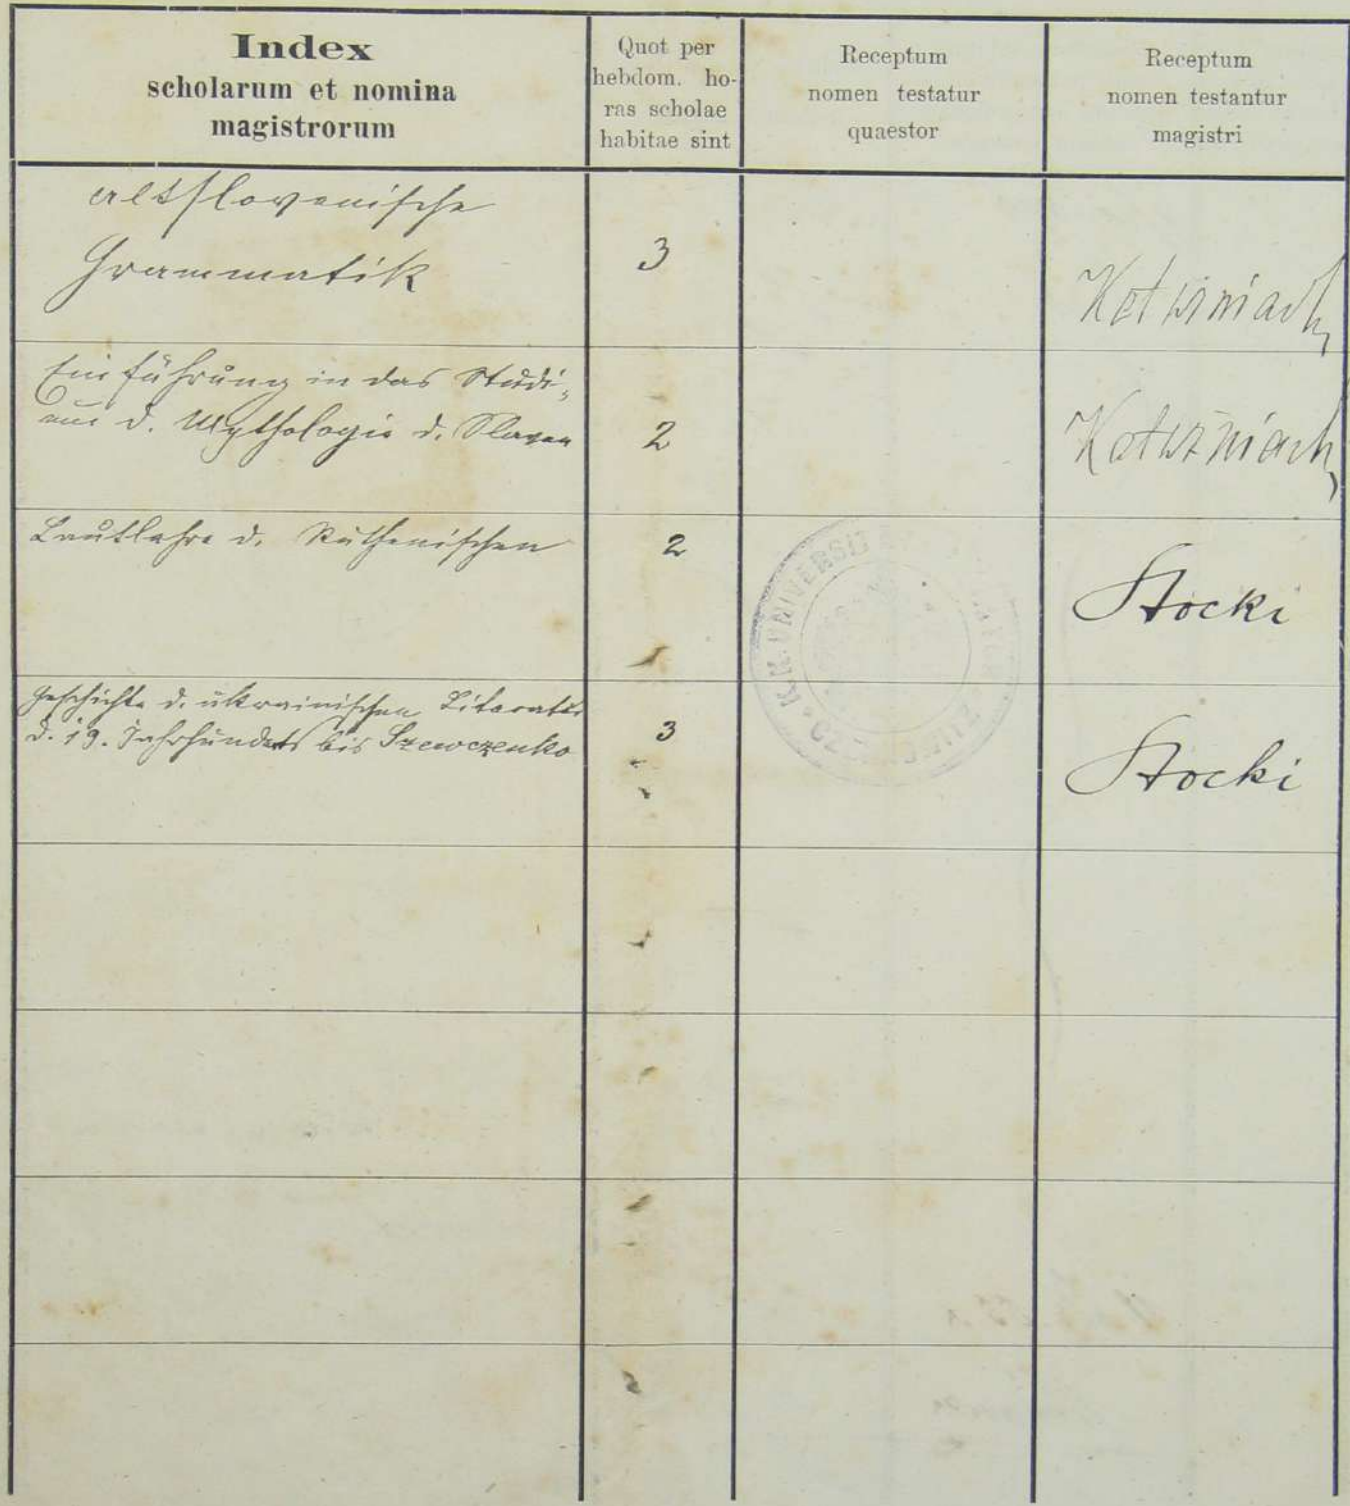 Index
scholarum et nomina
magistrorum
Quot per
hebdom. ho-
ras scholae
habitae sint
Receptum
nomen testatur
quaestor
Receptum
nomen testantur
magistri
altslovenische
Grammatik
3
Einführung in das Studi-
um d. Mythologie d. Slaven
2
Lautlehre d. Ruthenischen
2
K.K. UNIVERSIT
Stocki
Geschichte d. ukrainischen Literatur
d. 19. Jahrhunderts bis Szewczenko
3
Stocki